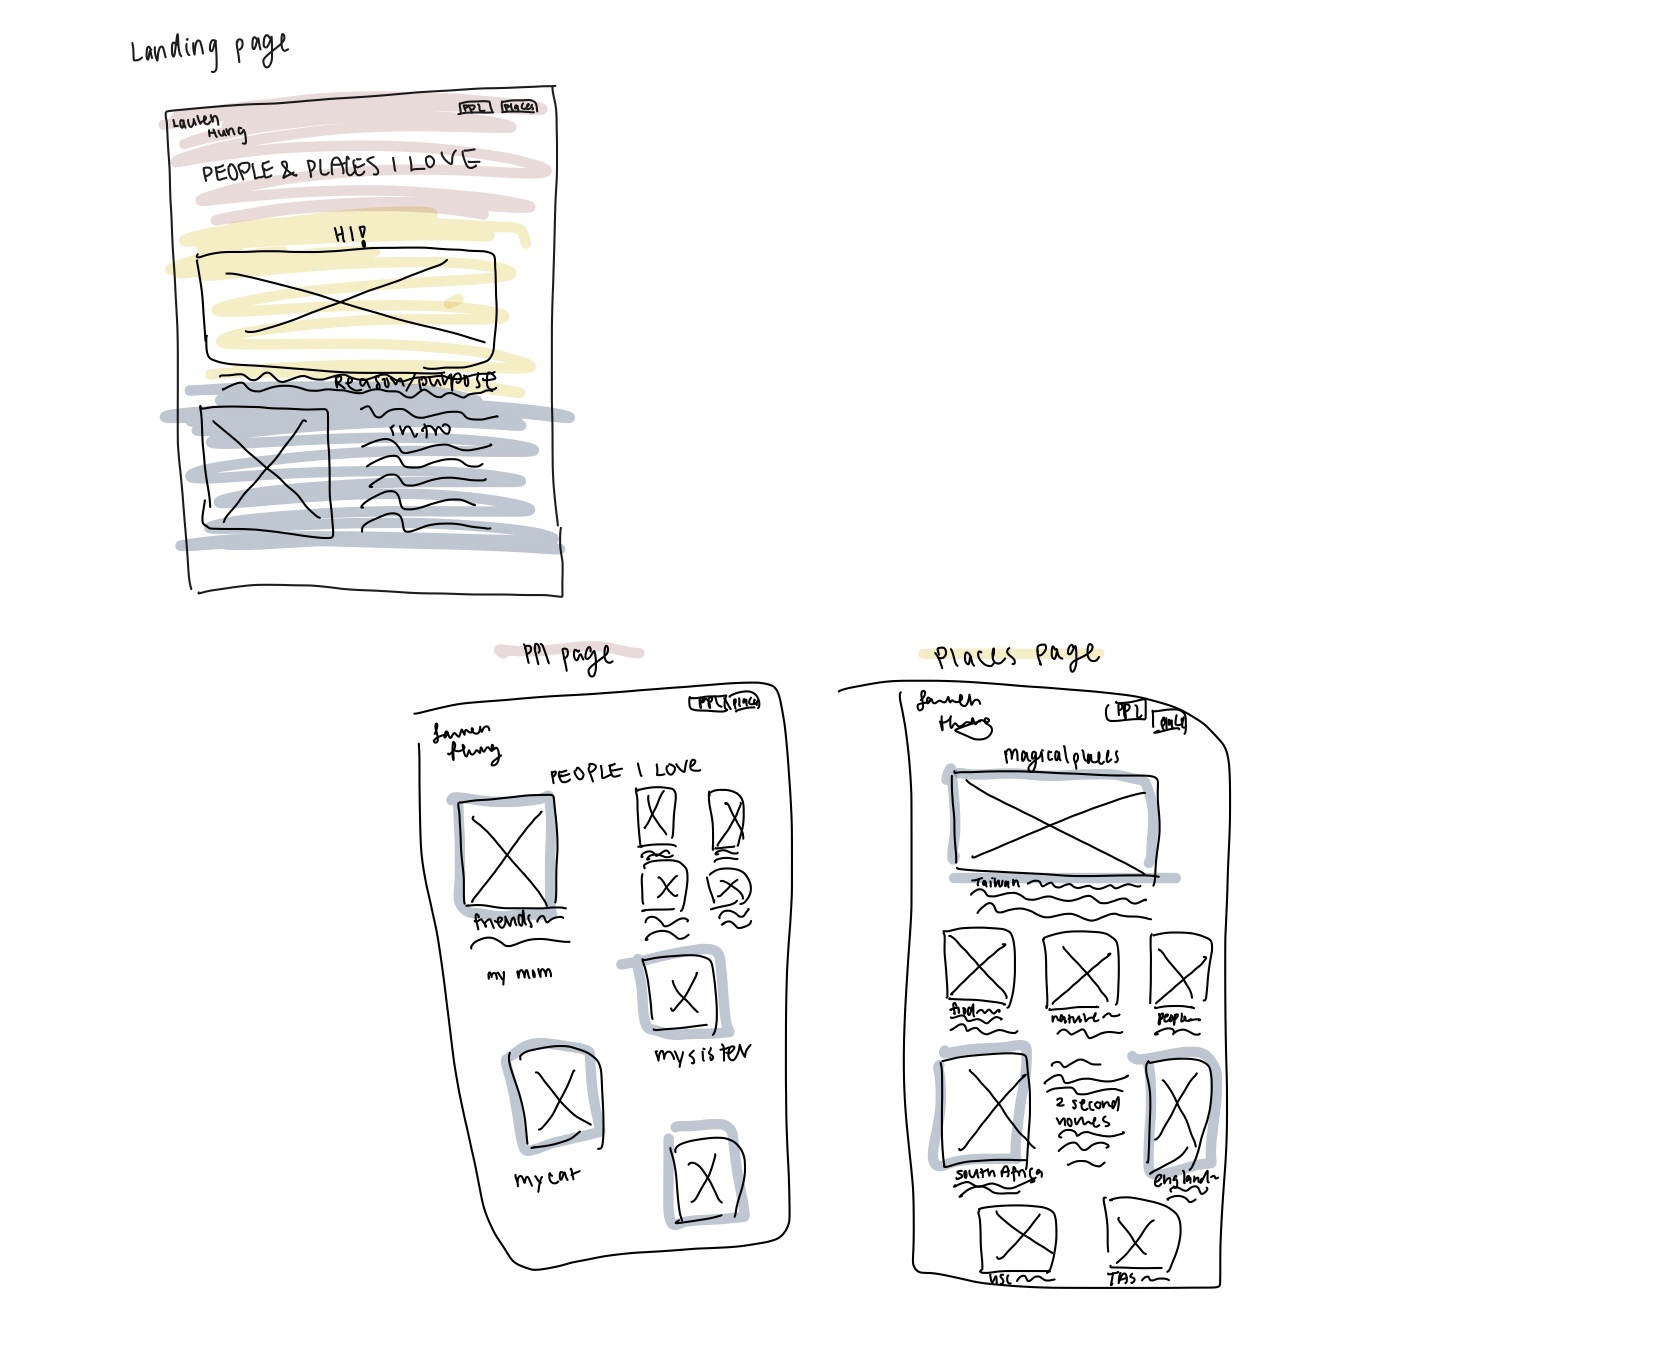 Landing page
PPL
Places
Lauren
Hung
PEOPLE & PLACES I LOVE
HI!
Reason/purpose
intro
PPl page
PPL
places
Lauren
Hung
PEOPLE I LOVE
friends
my mom
my sister
my cat
Places page
Lauren
Hung
PPL
places
Magical places
Taiwan
food
nature
people
2 second
homes
south Africa
england
USC
TAS